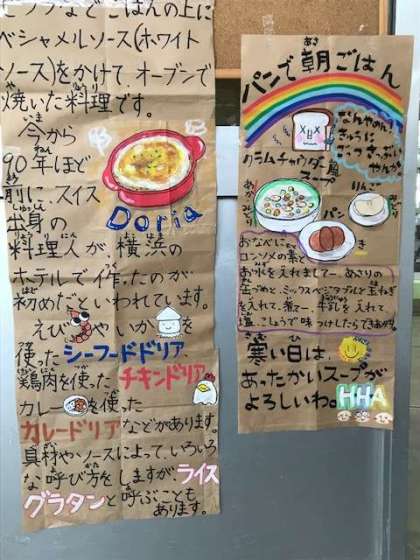 ピラフなどごはんの上に
ベシャメルソース(ホワイト
ソース)をかけて、オーブンで
焼いた料理です。
今から
90年ほど
前にスイス
出身の
料理人が横浜の
ホテルで作ったのが
初めだといわれています。
えびやいかを
使ったシーフードドリア、
鶏肉を使ったチキンドリア、
カレーを使った
カレードリアなどがあります。
具材やソースによって、いろいろ
な呼び方をしますが、ライス
グラタンと呼ぶことも
あります。
Doria
パンで朝ごはん
クラムチャウダー風
スープ
パン
りんご
おなべに。
コンソメの素と
お水を入れまして、あさりの
缶づめと、ミックスベジタブルと玉ねぎ
を入れて、煮て、牛乳を入れて、
塩、こしょうで味つけしたらできあがり。
寒い日は、
あったかいスープが
よろしいわ。
HHA